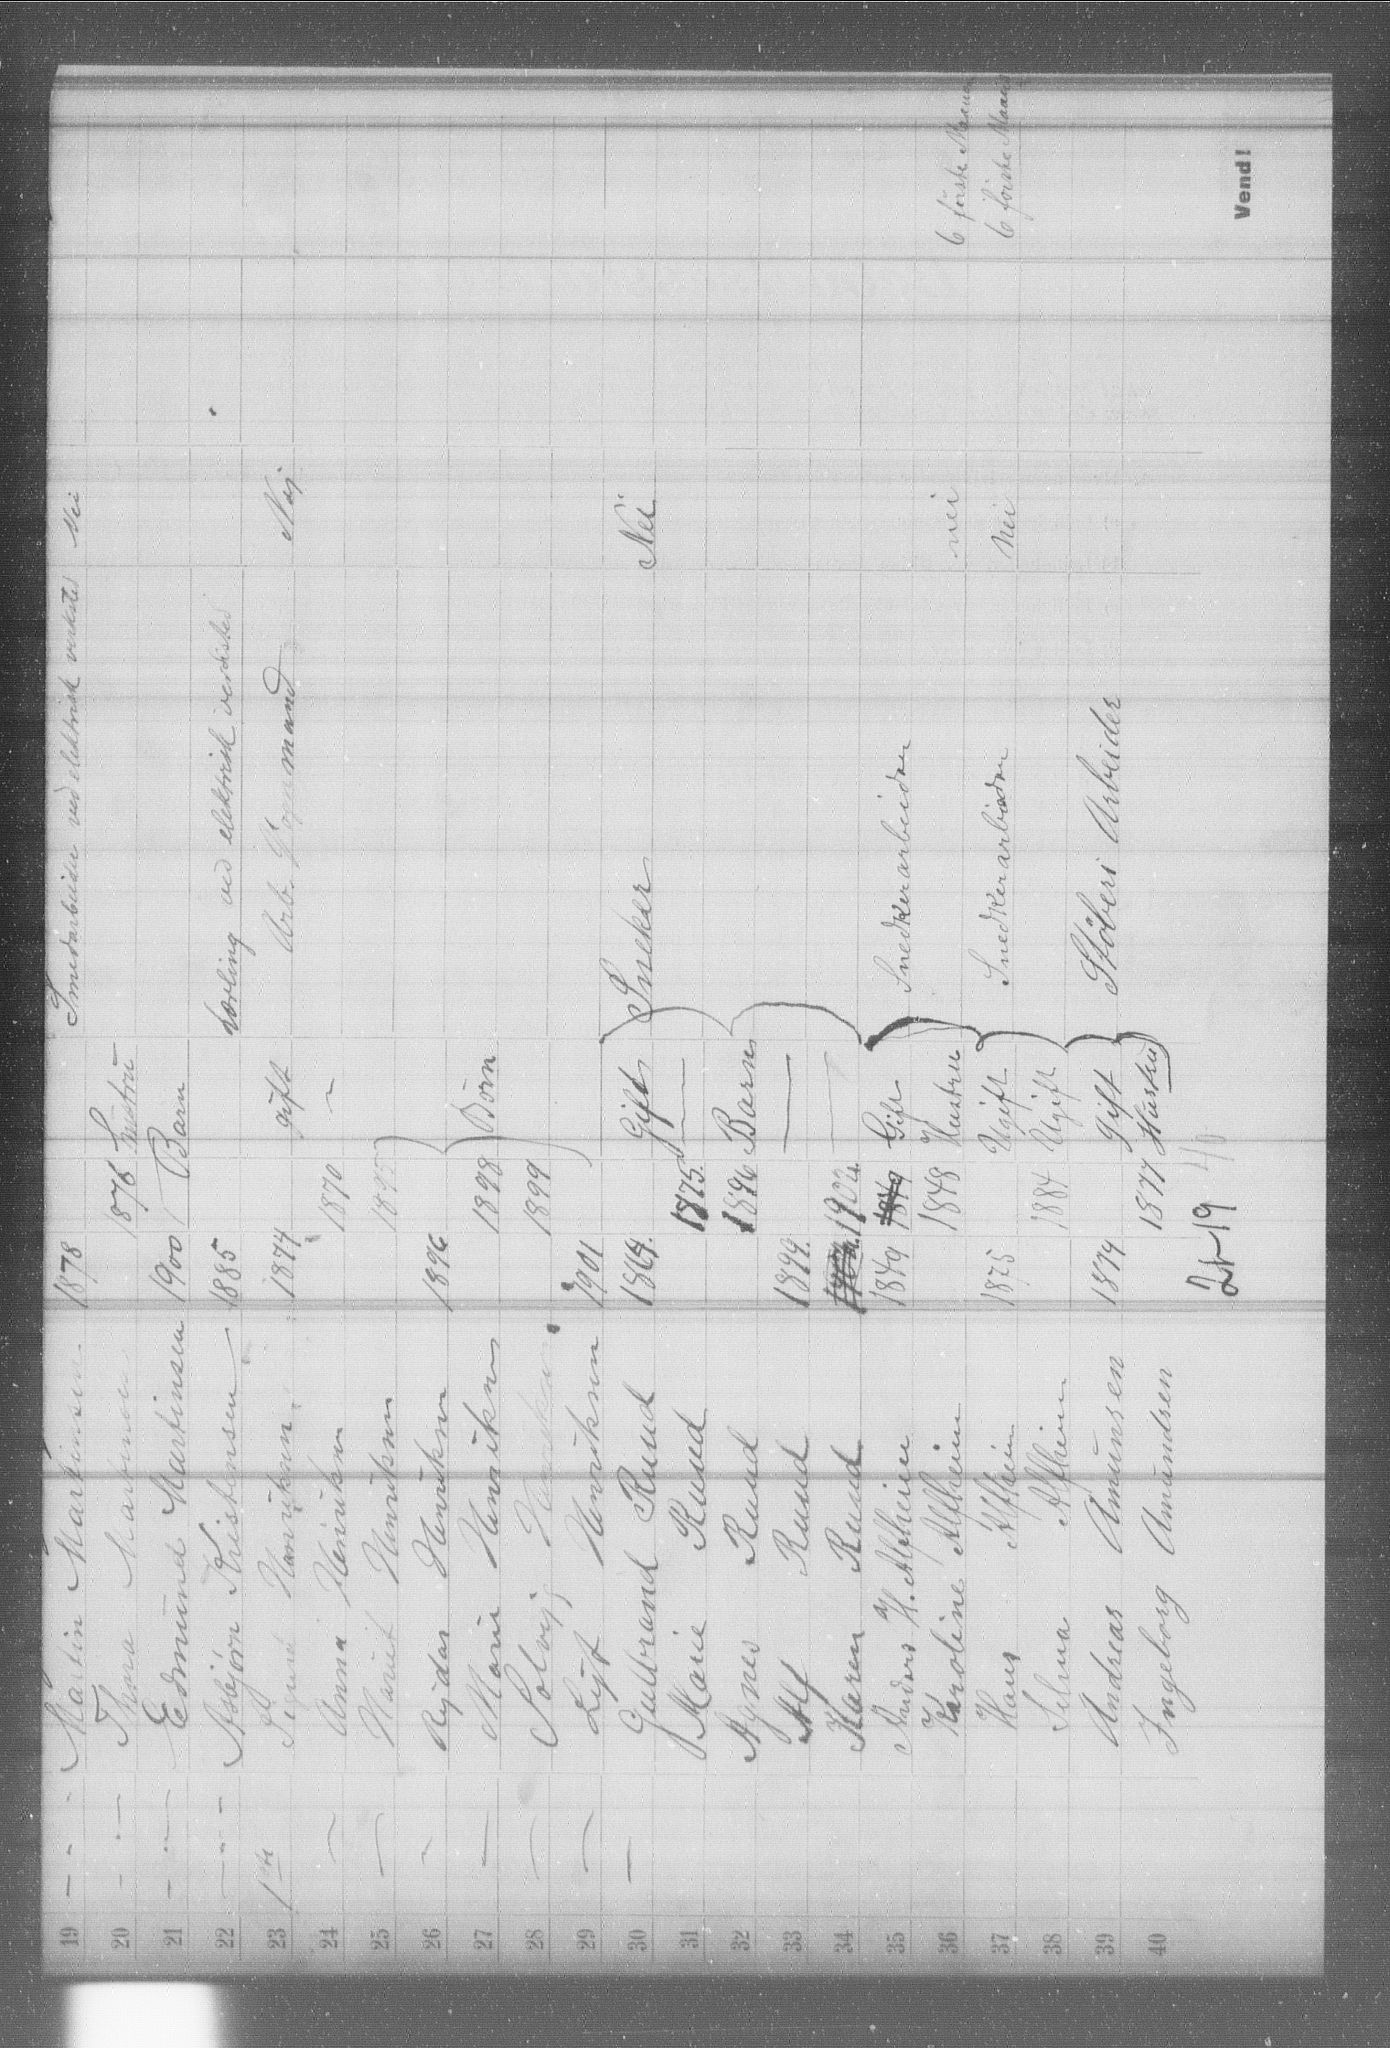 19 — - - Martin Martinsen. 1878 Smedarbeider ved elektrisk verksted Nei
20 - - — Thora Martinsen 1876 Hustru
21 - - — Edmund Martinsen 1900 Barn
22 — - - Asbjörn Kristensen 1885 Lærling ved elektrisk verksted
23 1ste Sigurd Henriksen 1874 gift Arb. Nej
24 — Anna Henriksen 1870 ~
25 — Marit Henriksen 1895
26 - Rejdar Henriksen 1896
27 — Marie Henriksen 1898 Börn
28 — Solveig Henriksen 1899
29 — Leif Henriksen 1901
30 — Gulbrand Ruud 1864. Gift Sneker Nei
31 Marie Ruud 1875. —
32 Agnes Ruud 1896 Barn
33 Alf Ruud 1899. —
34 Karen Ruud 1902. —
35 Anders H. Alfheim 1849 1849 Gift Snedkerarbeider
36 Karoline Alfheim 1848 Hustru nei 6 förste Maaned
37 Hans Alfheim 1875 Ugift Snedkerarbeider nei 6 förste Maaned
38 Selma Alfheim 1884 Ugift
39 Andreas Amunsen 1874 gift Stöberi Arbeider
40 Ingeborg Amundsen 1877 Hustru
21 - 19 40
Vend!